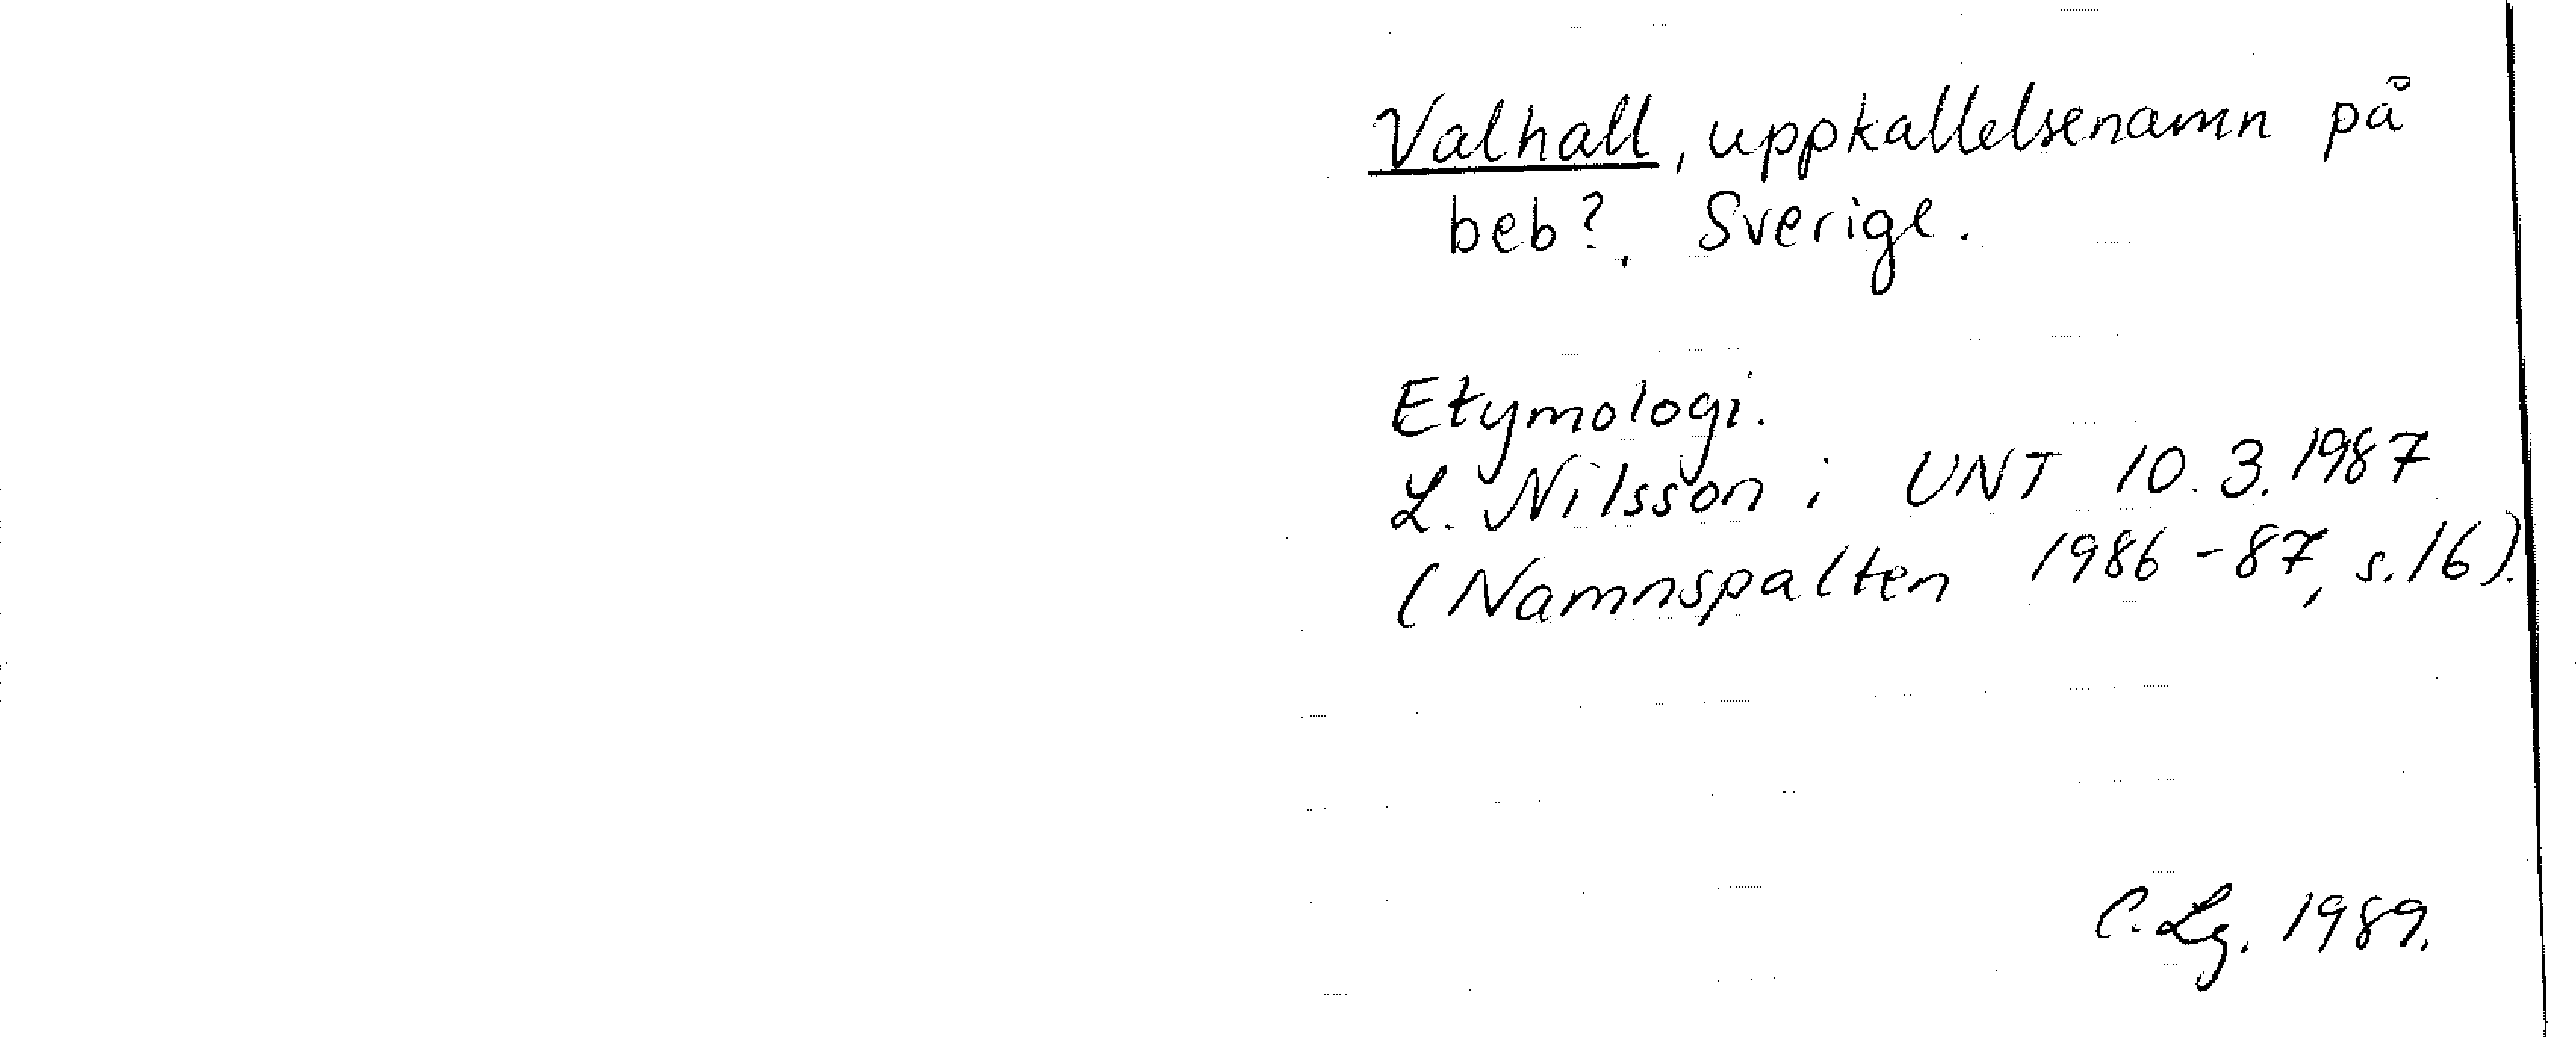 Valhall, uppkallelsenamn på
beb?. Sverige.
Etymologi.
L. Nilsson i UNT 10.3.1987
(Namnspalten 1986-87, s.16).
C. Lg. 1989.